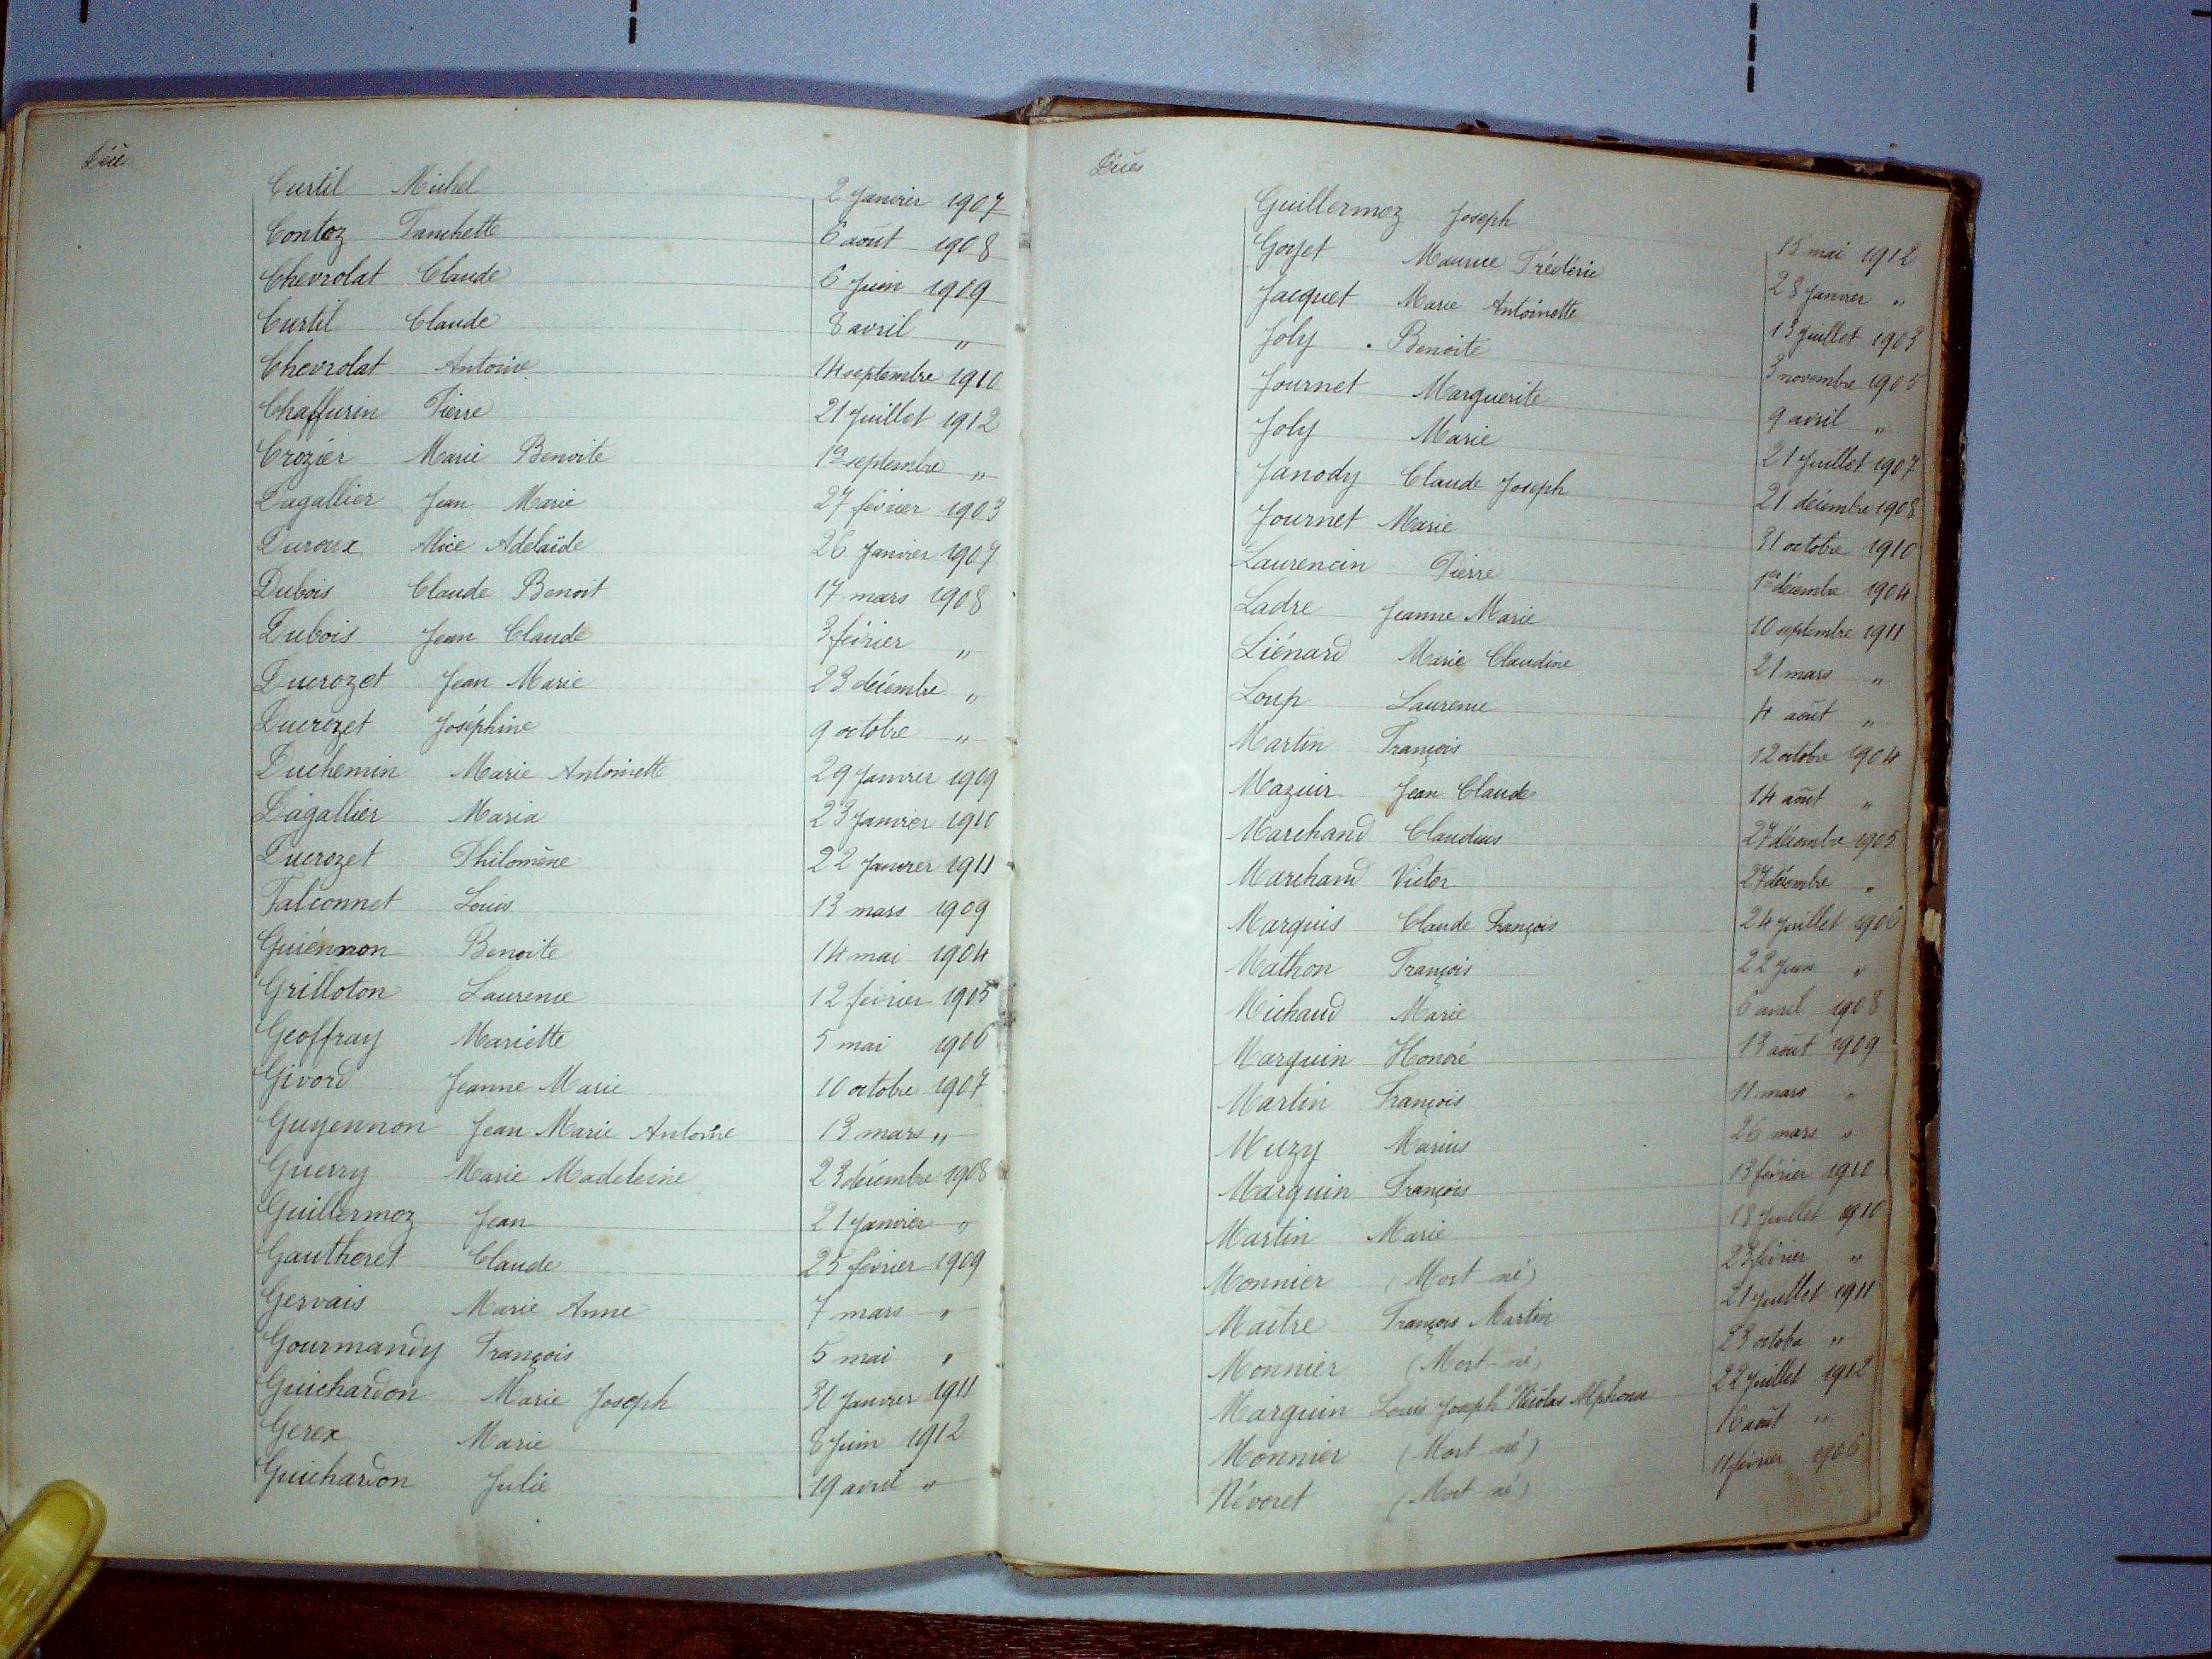 Décès
Curtil Michel 2 Janvier 1907
Contoz Fanchette 6 août 1908
Chevrolat Claude 6 Juin 1909
Curtil Claude 8 avril "
Chevrolat Antoine 14 septembre 1910
Chaffurin Pierre 21 Juillet 1912
Crozier Marie Benoite 1er septembre "
Dagallier Jean Marie 27 février 1903
Duroux Alice Adelaïde 26 Janvier 1907
Dubois Claude Benoit 17 mars 1908
Dubois Jean Claude 3 février "
Ducrozet Jean Marie 23 décembre "
Ducrozet Joséphine 9 octobre "
Duchemin Marie Antoinette 29 Janvier 1909
Dagallier Maria 23 Janvier 1910
Ducrozet Philomène 22 Janvier 1911
Falconnet Louis 13 mars 1909
Guiénnon Benoite 14 mai 1904
Grilloton Laurence 12 février 1905
Geoffray Mariette 5 mai 1906
Givord Jeanne Marie 10 octobre 1907
Guyennon Jean Marie Antoine 13 mars "
Guerry Marie Madeleine 23 décembre 1908
Guillermoz Jean 21 Janvier "
Gautheret Claude 25 février 1909
Gervais Marie Anne 7 mars "
Gourmandy François 5 mai "
Guichardon Marie Joseph 30 Janvier 1911
Gerex Marie 8 Juin 1912
Guichardon Julie 19 avril "
Décès
Guillermoz Joseph 15 mai 1912
Goyet Maurice Frédéric 28 Janvier "
Jacquet Marie Antoinette 13 Juillet 1903
Joly Benoite 3 novembre 1905
Journet Marguerite 9 avril "
Joly Marie 21 Juillet 1907
Janody Claude Joseph 21 décembre 1908
Journet Marie 31 octobre 1910
Laurencin Pierre 1er décembre 1904
Ladre Jeanne Marie 10 septembre 1911
Liénard Marie Claudine 21 mars "
Loup Laurence 4 août "
Martin François 12 octobre 1904
Mazuir Jean Claude 14 août "
Marchand Claudius 27 décembre 1905
Marchand Victor 27 décembre "
Marquis Claude François 24 Juillet 1906
Mathon François 22 Juin "
Michaud Marie 6 avril 1908
Marguin Honoré 13 août 1909
Martin François 11 mars "
Muzy Marius 26 mars "
Marguin François 13 février 1910
Martin Marie 18 Juillet 1910
Monnier (Mort né) 23 février "
Maitre François Martin 21 Juillet 1911
Monnier (Mort-né) 23 octobre "
Marguin Louis Joseph Nicolas Alphonse 22 Juillet 1912
Monnier (Mort né) 16 août "
Névoret (Mort-né) 11 février 1906